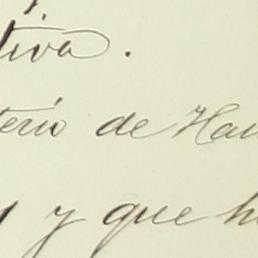 tiva.
terio de Hac
y y que h